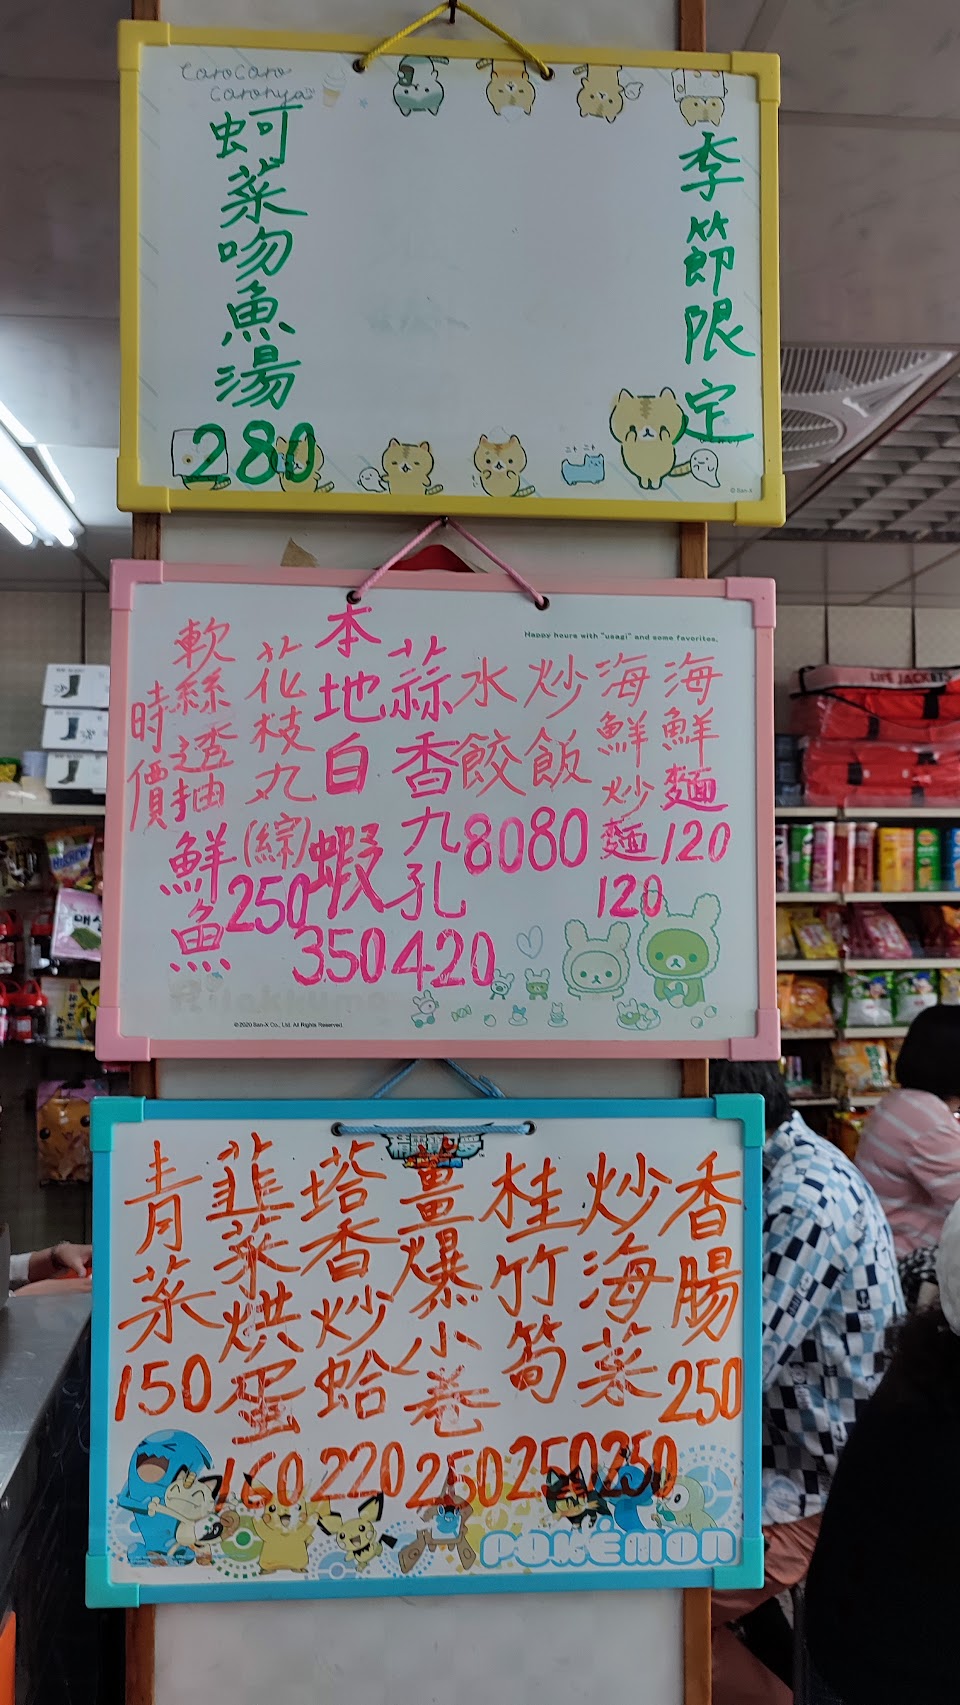 CoroCoro
Coronya
季節限定
蚵菜吻魚湯
280
Happy hours with "usagi" and some favorites.
海鮮麵
120
海鮮炒麵
120
炒飯
80
水餃
80
蒜香九孔
420
本地白蝦
350
花枝丸(綜)
250
軟絲透抽鮮魚
時價
Rilakkuma
©2020 San-X Co., Ltd. All Rights Reserved.
香腸
250
炒海菜
250
桂竹筍
250
薑爆小卷
250
塔香炒蛤
220
韮菜烘蛋
160
青菜
150
POKÉMON
LIFE JACKETS